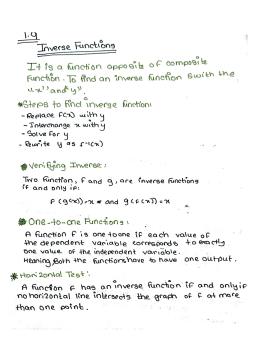 1.9
Inverse Functions
It is a function opposite of composite
function. To find an inverse function switch the
"x" and "y".
*Steps to find inverse function:
- Replace f(x) with y
- Interchange x with y
- Solve for y
- Rewrite y as f⁻¹(x)
*Verifying Inverse:
Two function, f and g, are inverse functions
if and only if:
f(g(x)) = x and g(f(x)) = x
*One-to-one Functions:
A function f is one to one if each value of
the dependent variable corresponds to exactly
one value of the independent variable.
Meaning both the functions have to have one output.
*Horizontal Test:
A function f has an inverse function if and only if
no horizontal line intersects the graph of f at more
than one point.